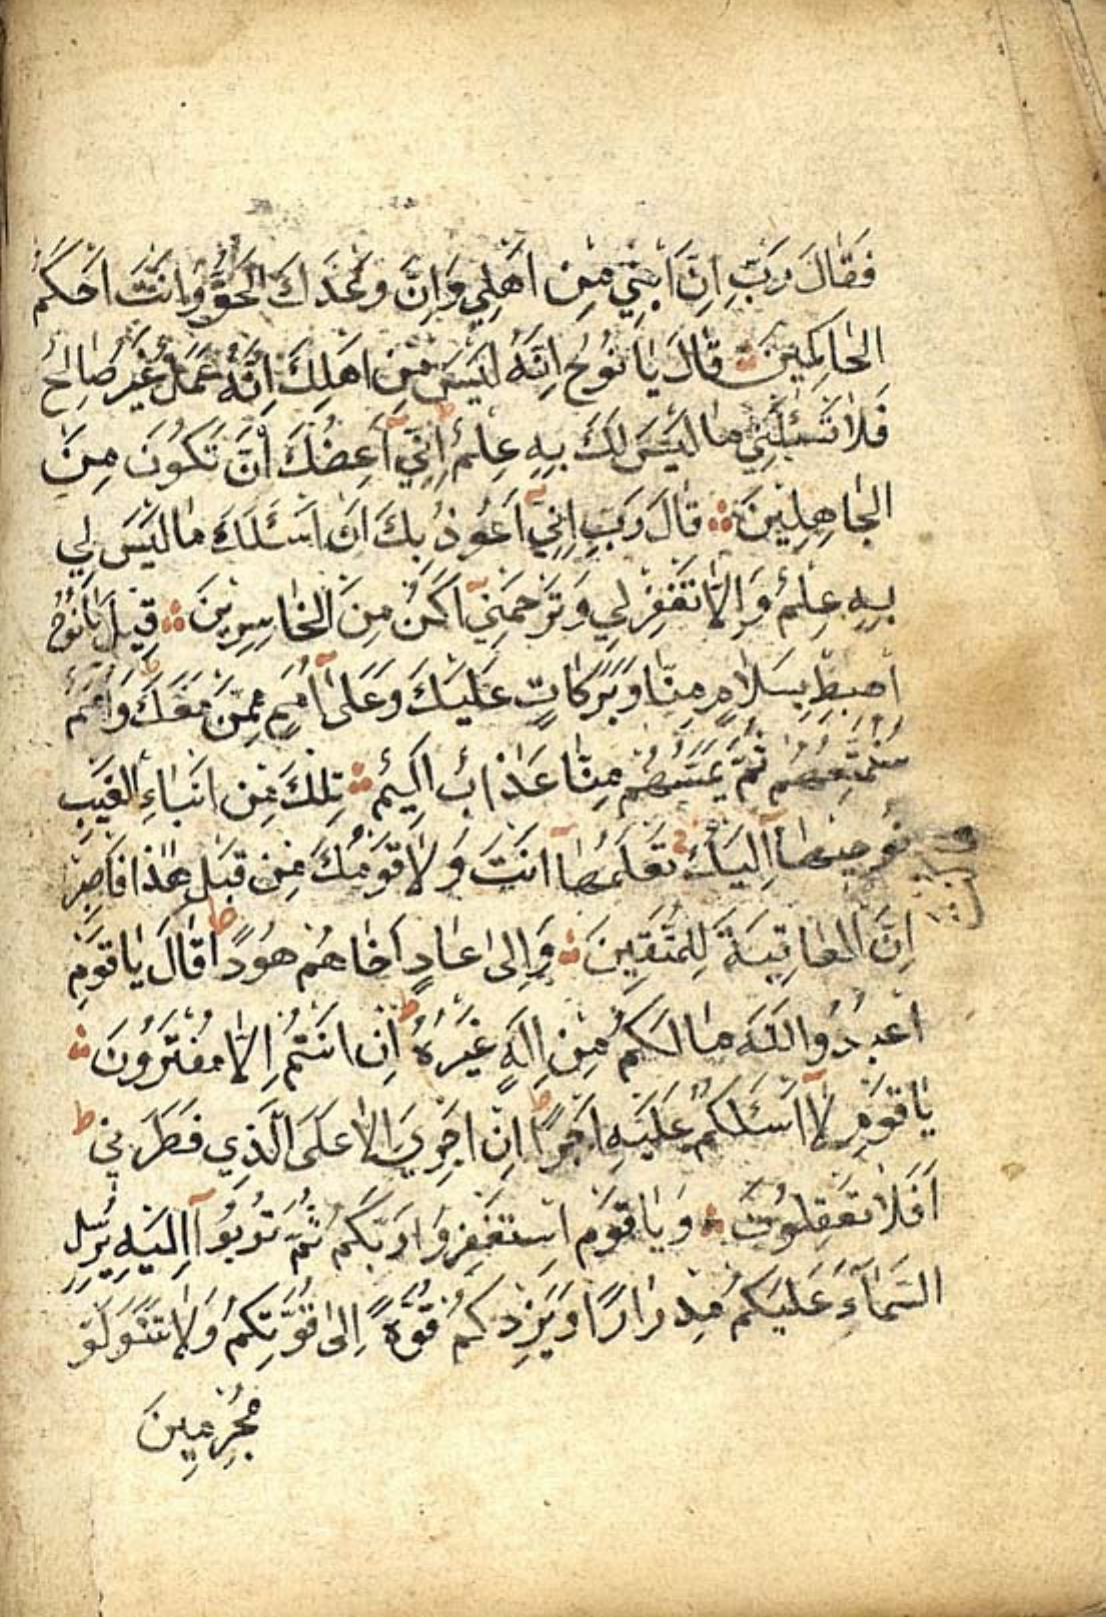 فَقَالَ رَبِّ اِنَّ ابْنِي مِنْ اَهْلِي وَاِنَّ وَعْدَكَ الْحَقُّ وَاَنْتَ اَحْكَمُ
الْحَاكِمِينَ قَالَ يَا نُوحُ اِنَّهُ لَيْسَ مِنْ اَهْلِكَ اِنَّهُ عَمَلٌ غَيْرُ صَالِحٍ
فَلَا تَسْئَلْنِي مَا لَيْسَ لَكَ بِهِ عِلْمٌ ط اِنِّي اَعِظُكَ اَنْ تَكُونَ مِنَ
الْجَاهِلِينَ قَالَ رَبِّ اِنِّي اَعُوذُ بِكَ اَنْ اَسْئَلَكَ مَا لَيْسَ لِي
بِهِ عِلْمٌ وَاِلَّا تَغْفِرْ لِي وَتَرْحَمْنِي اَكُنْ مِنَ الْخَاسِرِينَ قِيلَ يَا نُوحُ
اهْبِطْ بِسَلَامٍ مِنَّا وَبَرَكَاتٍ عَلَيْكَ وَعَلَى اُمَمٍ مِمَّنْ مَعَكَ ط وَاُمَمٌ
سَنُمَتِّعُهُمْ ثُمَّ يَمَسُّهُمْ مِنَّا عَذَابٌ اَلِيمٌ تِلْكَ مِنْ اَنْبَاءِ الْغَيْبِ
نُوحِيهَا اِلَيْكَ تَعْلَمُهَا اَنْتَ وَلَا قَوْمُكَ مِنْ قَبْلِ هٰذَا فَاصْبِرْ
اِنَّ الْعَاقِبَةَ لِلْمُتَّقِينَ وَاِلٰى عَادٍ اَخَاهُمْ هُودًا ط قَالَ يَا قَوْمِ
اعْبُدُوا اللّٰهَ مَا لَكُمْ مِنْ اِلٰهٍ غَيْرُهُ ط اِنْ اَنْتُمْ اِلَّا مُفْتَرُونَ
يَا قَوْمِ لَا اَسْئَلُكُمْ عَلَيْهِ اَجْرًا ط اِنْ اَجْرِيَ اِلَّا عَلَى الَّذِي فَطَرَنِي ط
اَفَلَا تَعْقِلُونَ وَيَا قَوْمِ اسْتَغْفِرُوا رَبَّكُمْ ثُمَّ تُوبُوا اِلَيْهِ يُرْسِلِ
السَّمَآءَ عَلَيْكُمْ مِدْرَارًا وَيَزِدْكُمْ قُوَّةً اِلٰى قُوَّتِكُمْ وَلَا تَتَوَلَّوْ
مُجْرِمِينَ